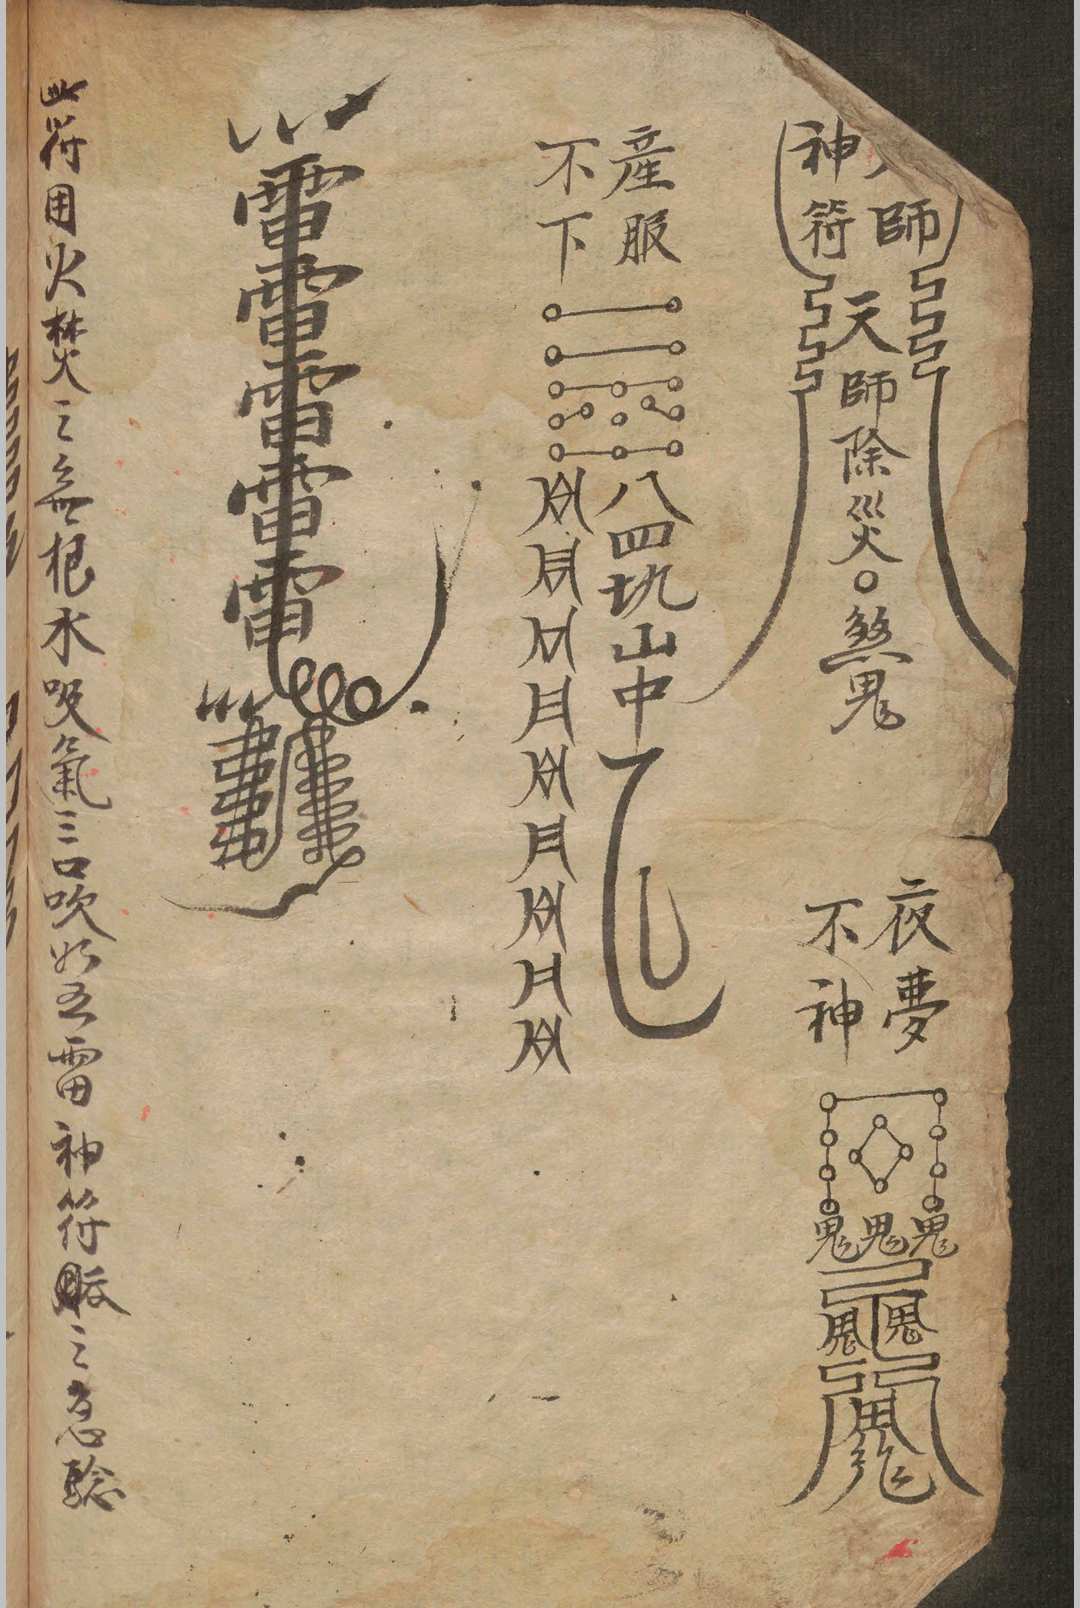 師
神符
天師除災煞鬼
夜夢
不神
鬼鬼鬼
鬼鬼
鬼
産服
不下
八四坑山中
雷雷雷雷雷
此符用火焚之無根水吸氣三口吹如五雷神符服之急驗